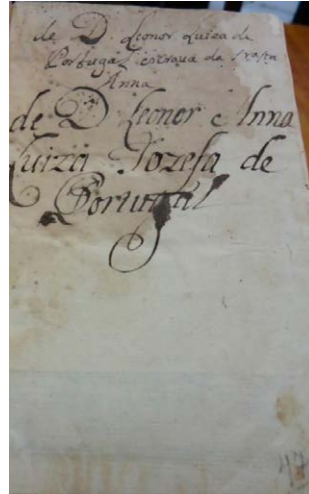 de D Leonor Luiza de
Portugal escrava da Srasta
Anna
de D Leonor e Anna
Luiza Jozefa de
Portugal
47